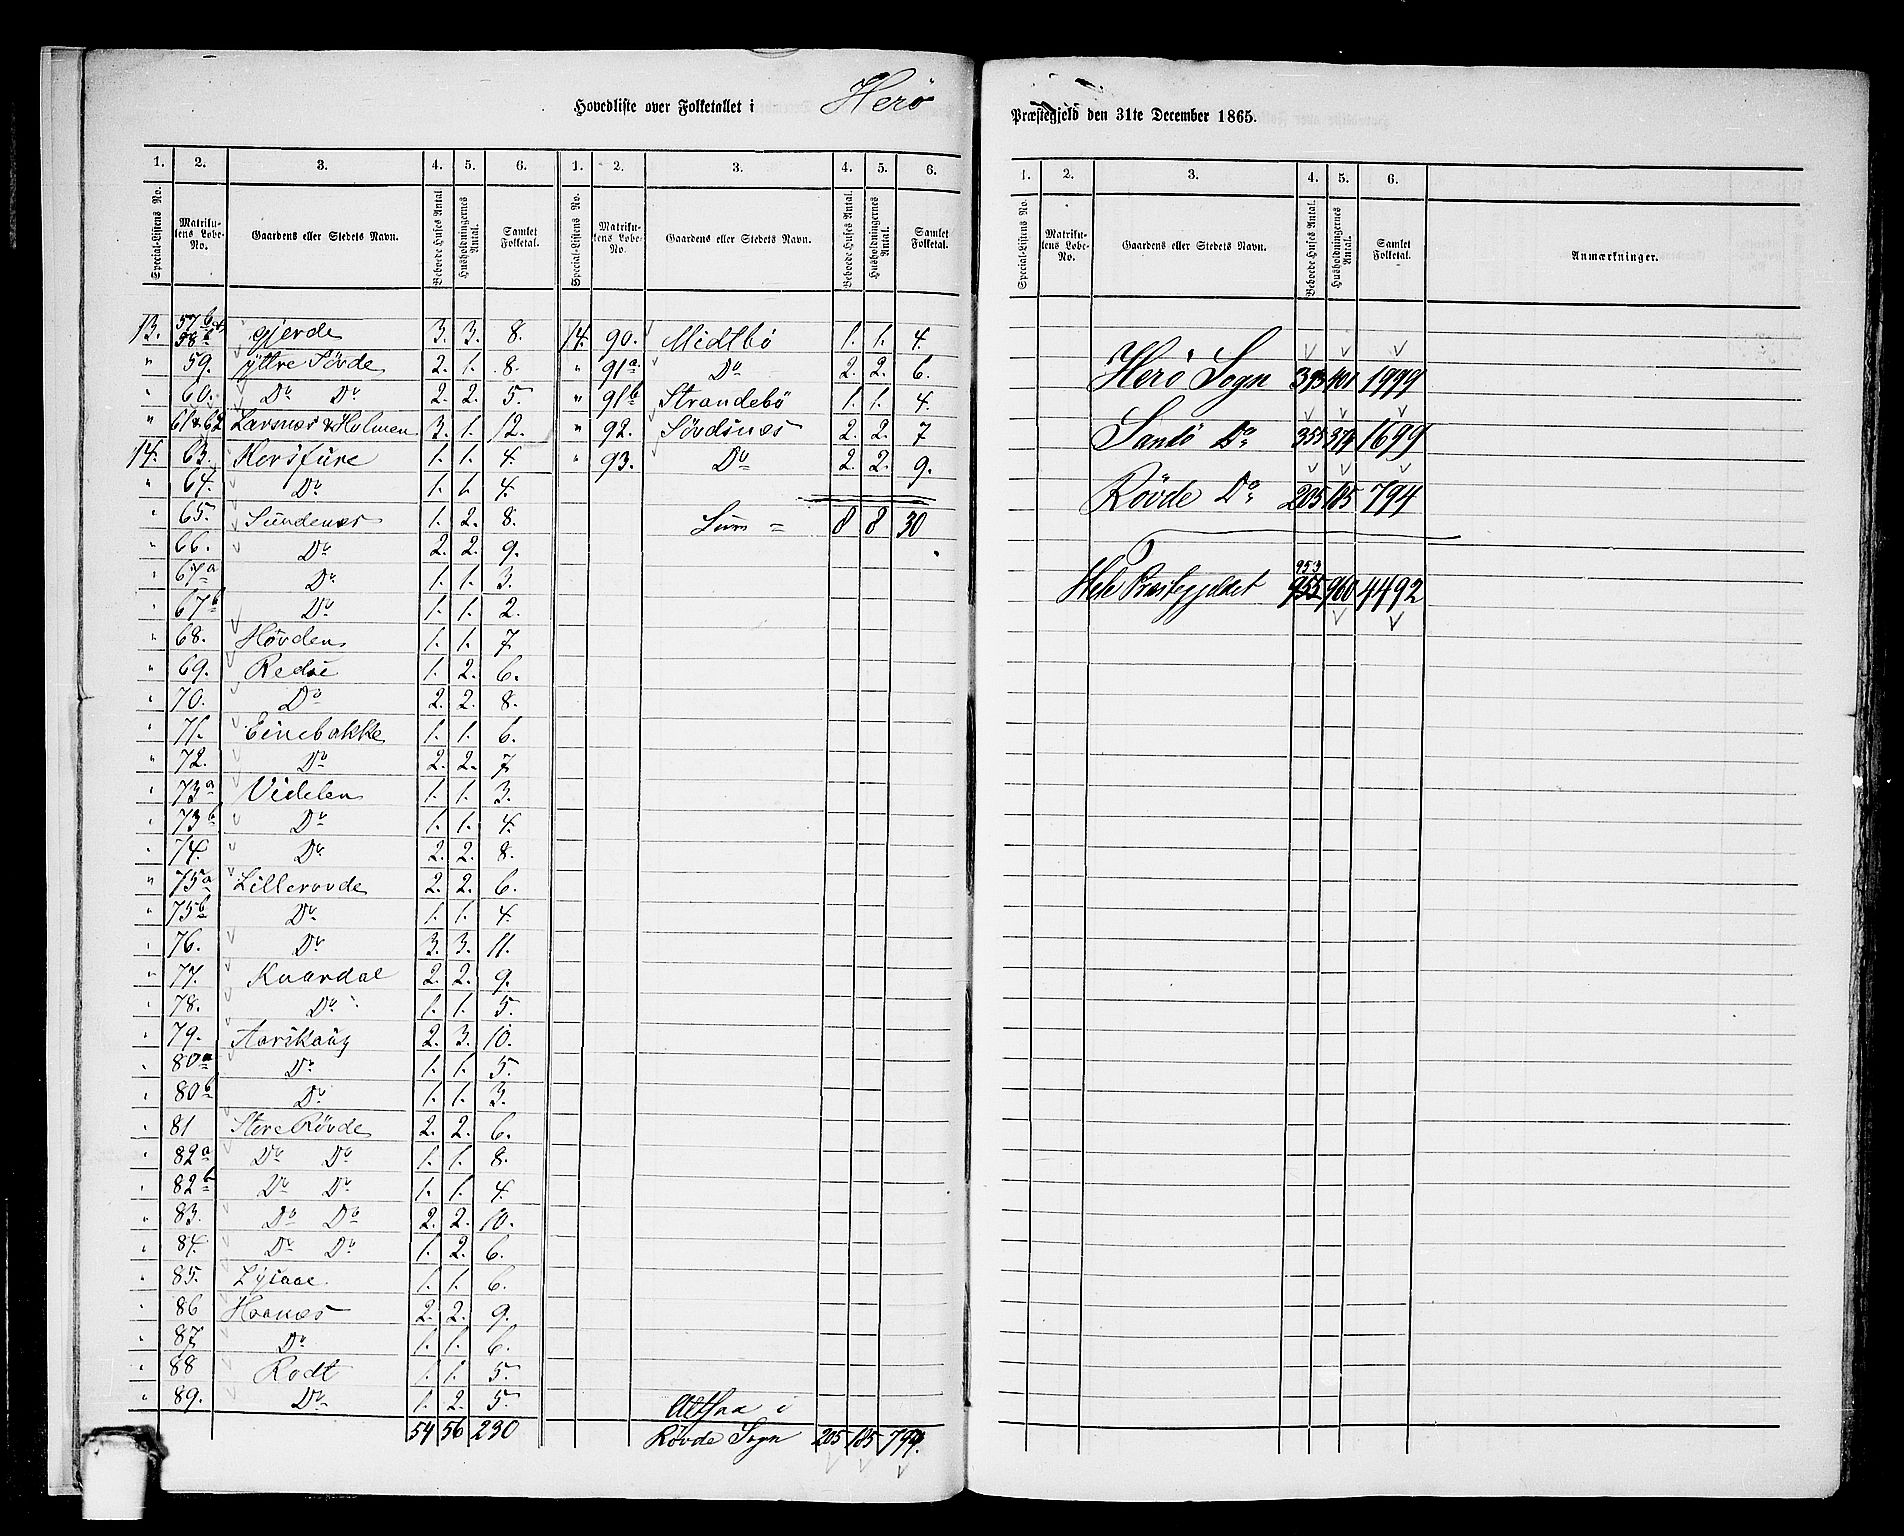 Hovedliste over Folketallet i Herö Præstegjeld den 31te December 1865.
1. 2. 3. 4. 5. 6. 1. 2. 3. 4. 5. 6.
Special-Listens No. Matrikulens Løbe-No. Gaardens eller Stedets Navn. Beboede Huses Antal. Husholdningernes Antal. Samlet Folketal. Special-Listens No. Matrikulens Løbe-No. Gaardens eller Stedets Navn. Beboede Huses Antal. Husholdningernes Antal. Samlet Folketal.
13. 57b 58 gjerde 3. 3. 8. 14. 90. Midtbö 1. 1. 4.
" 59. yttre Sövde 2. 1. 8. " 91a Do 2. 2. 6.
" 60. Do Do 2. 2. 5. " 91b Strandebö 1. 1. 4.
" 61 & 62 Larsnæs & Holmen 3. 1. 12. " 92. Sövdsnæs 2. 2. 7
14. 63. Korsfure 1. 1. 4. " 93. Do 2. 2. 9.
" 64. Do 1. 1. 4.
" 65. Sundenæs 1. 2. 8. Sum = 8 8 30
" 66. Do 2. 2. 9.
" 67a Do 1. 1. 3.
" 67b Do 1. 1. 2.
" 68. Hövden 1. 1. 7.
" 69. Redse 1. 2. 6.
" 70. Do 2. 2. 8.
" 71. Einebakke 1. 1. 6.
" 72. Do 2. 2. 7.
" 73a Videlen 1. 1. 3.
" 73b Do 1. 1. 4.
" 74. Do 2. 2. 8.
" 75a Lillerovde 2. 2. 6.
" 75b Do 1. 1. 4.
" 76. Do 3. 3. 11.
" 77. Kvardal 2. 2. 9.
" 78. Do 1. 1. 5.
" 79. Aarskaag 2. 3. 10.
" 80a Do 1. 1. 5.
" 80b Do 1. 1. 3.
" 81 Store Rövde 2. 2. 6.
" 82a Do Do 1. 1. 8.
" 82b Do Do 1. 1. 4.
" 83. Do Do 2. 2. 10.
" 84. Do Do 1. 2. 6.
" 85. Lysaae 1. 1. 6.
" 86 Haanæs 2. 2. 9.
" 87 Do 1. 1. 6.
" 88 Rodt 1. 1. 5.
" 89. Do 1. 2. 5.
Altsaa i
54 56 230 Rövde Sogn 205 185 794.
1. 2. 3. 4. 5. 6.
Special-Listens No. Matrikulens Løbe-No. Gaardens eller Stedets Navn. Beboede Huses Antal. Husholdningernes Antal. Samlet Folketal. Anmærkninger.
Herö Sogn 393 401 1999
Sandö Do 355 374 1699
Rövde Do 205 185 794
953
Hele Præstegjeldet 955 960 4492